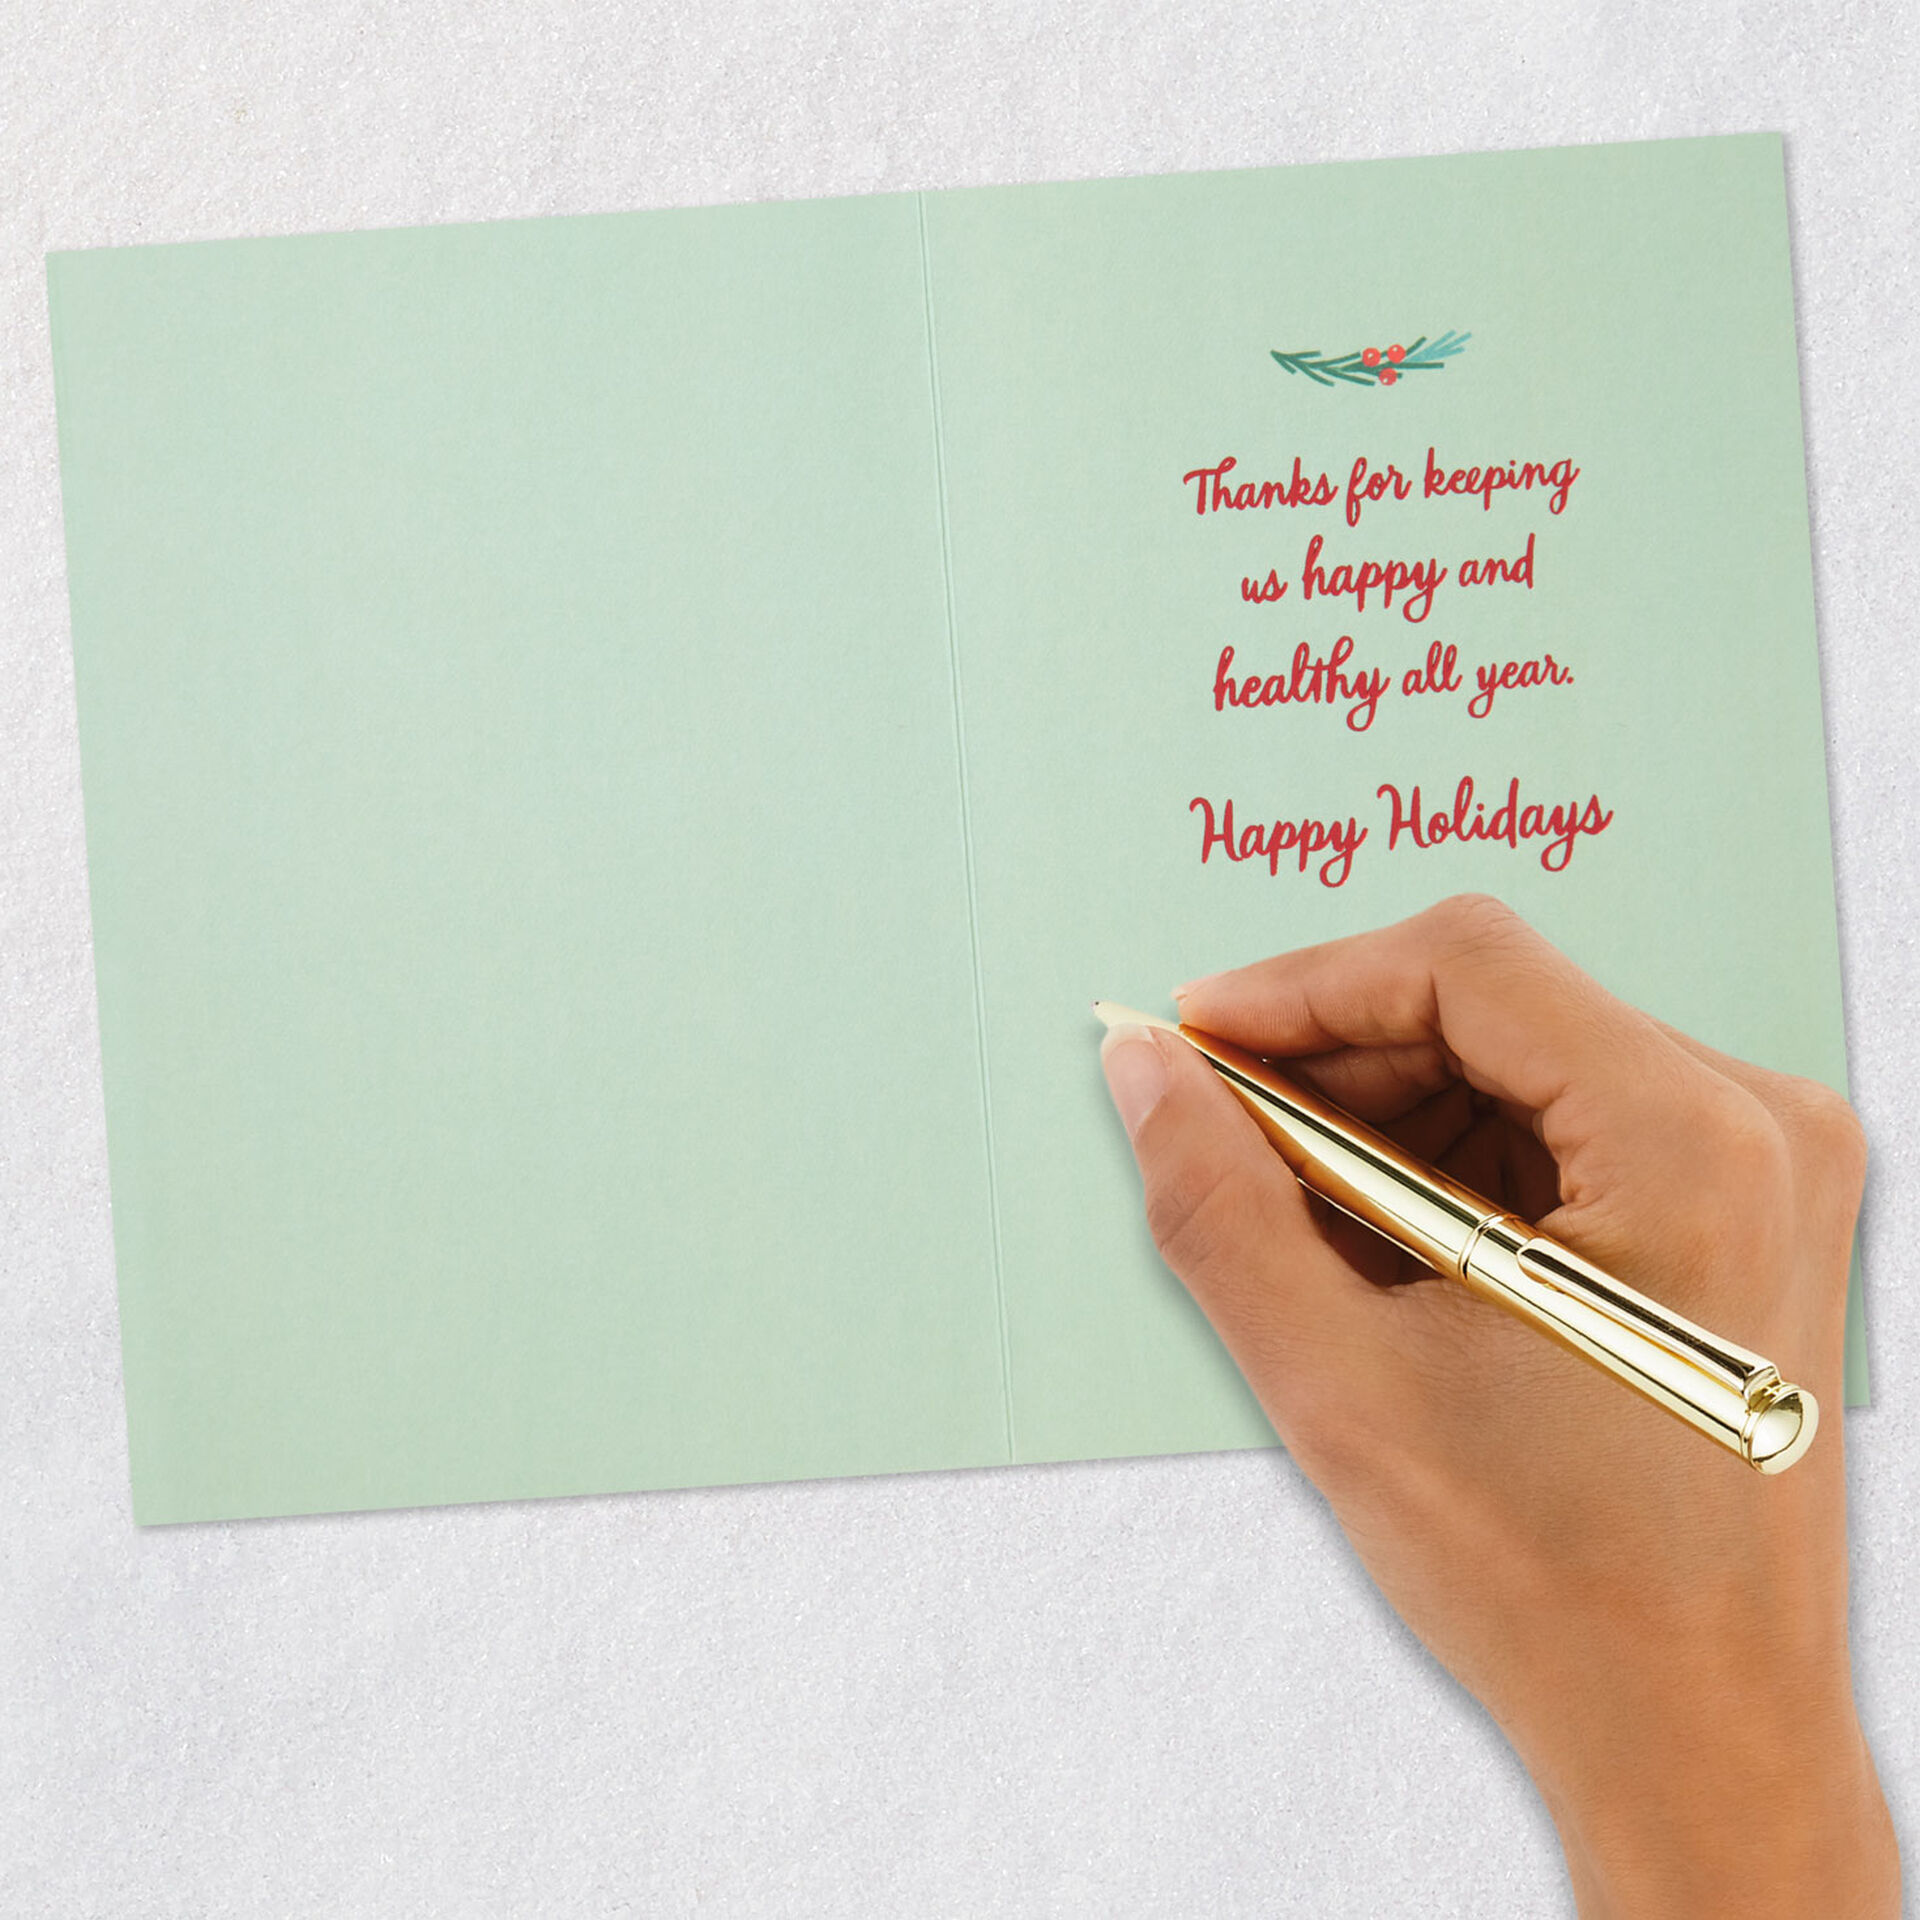 Thanks for keeping
us happy and
healthy all year.
Happy Holidays